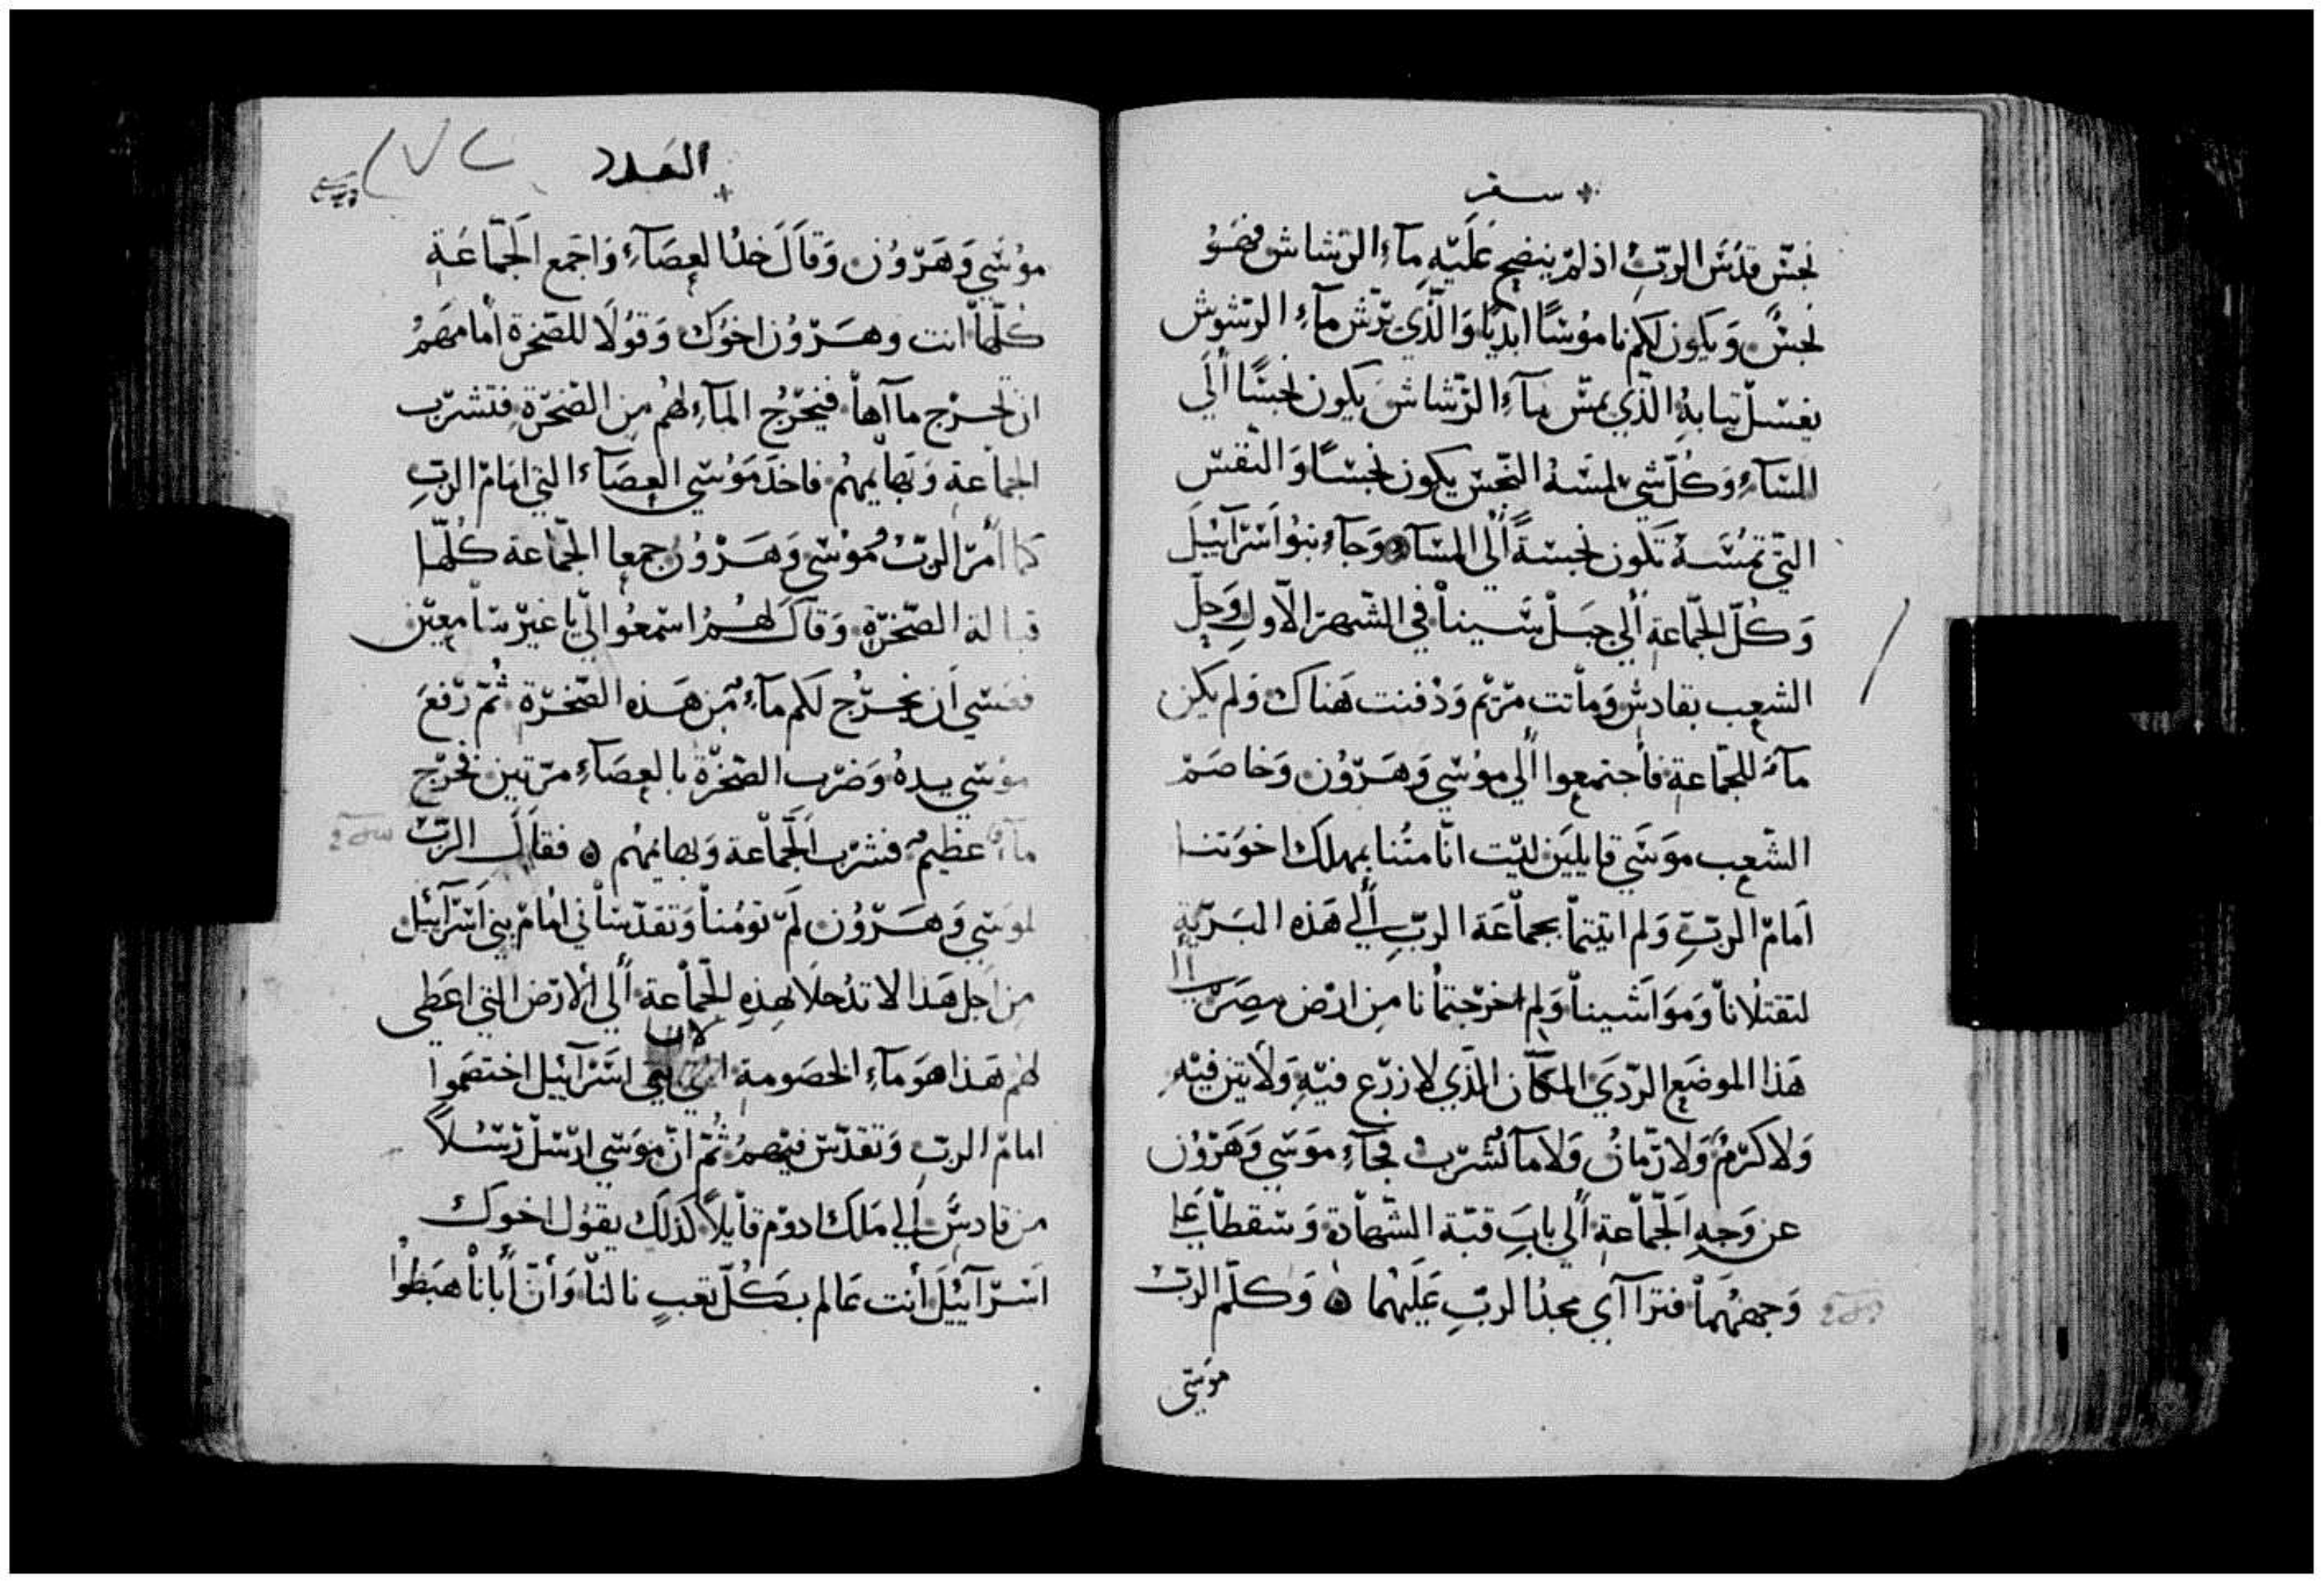 سفر
نجسّ قدَس الربّ اذ لم ينضح عَليَه مآء الرشاش فهَوُ
نجسٌ وَيكون لكم ناموسًا ابديًا وَالذي يرَش مآء الرشوش
يغسل ثيابهُ الذي يمسّ مآء الرشاش يكون نجسًا ألَي
المسَآء وَكُلّ شي يلمسَهُ النجس يكون نجسًا وَالنفس
التي تمسَهُ تكون نجسةً ألي المسآء وَجآء بنوُ اسَرآئيل
وَكُلّ الجماعة ألي جبل سَينا في الشهر الاول وَحلّ
الشعب بقادش وَماتت مَريم وَدُفنت هَناك وَلم يكن
مآء للجماعة فأجتمعوا ألي موُسَي وَهَرَوُن وَخاصَم
الشعب موَسَي قايلين ليَت انّا متُنا بمهلك اخوَتنا
اَمام الربِّ وَلم اتيَتما بجماعَة الربِّ ألي هَذه البَريّة
لتقتلُانا وَموَاشَينا وَلم اخرَجتمُانا من ارَض مصَر الي
هَذا الموضَع الرَديَ المكان الذَي لا زرَع فيَه وَلا تين فيَه
وَلا كرَمٌ وَلا رمّان وَلا مآ لشُرب فجآء موَسَي وَهَرَوُن
عن وَجه الجماعة ألي بابَ قبّة الشهادة وَسَقطا عَلي
وَجههَمُا فترَاآي مجدُ الربّ عَليَهما ۞ وَكلّم الربّ
موَسَي
العَدد
موُسَي وَهَرَوُن وَقاَل خذُا لعصَآء وَاجمَع الجَماعَة
كلُّها انت وهَرَوُن اخوُك وَقوُلَا للصخرة أمامهَمُ
ان تخرَج ماآها فيخَرُج المآء لهُم من الصَخرَة فتشرَب
الجماعة وَبهايمهُم فاخذَ موَسَي العصَآء التي امَام الربّ
كما أمَر الربّ موُسَي وَهَرَوُن جمعا الجماعة كُلّها
قبالة الصَخرَة وَقاَل لهُمُ اسَمعوُا اليّ يا غيرَ سَامعيَن
فعسَي أن يخَرُج لكم مآء من هَذه الصَخرَة ثُمّ رَفعَ
موُسَي يدهُ وَضرَب الصَخرَة بالعصَآء مرَتين فخرَج
مآء عظيم فشرَب الجَماعة وَبهايمهُم ۞ فقاَل الربّ
لموسَي وَهَرَوُن لمَ توُمنا وَتقدّسَاني امُام بني اسَرآئيل
من اَجل هَذا لا تدُخلَا هَذه الجماعة ألي ألارَض التي اعَطي
لهُم هَذا هوَ مآء الخصَومة لان بني اسَرآئيل اختصَموا
امام الربّ وَتقدّس فيهمُ ثمُ انّ موَسَي ارَسَل رَسُلاً
من قادسَ ألي مَلَك ادوم قايلاً كذلَك يقوُل اخوك
اسَرآئيَل أنت عَالم بكُلّ تعبٍ نالنا وَأن أباَنا هبَطوُا